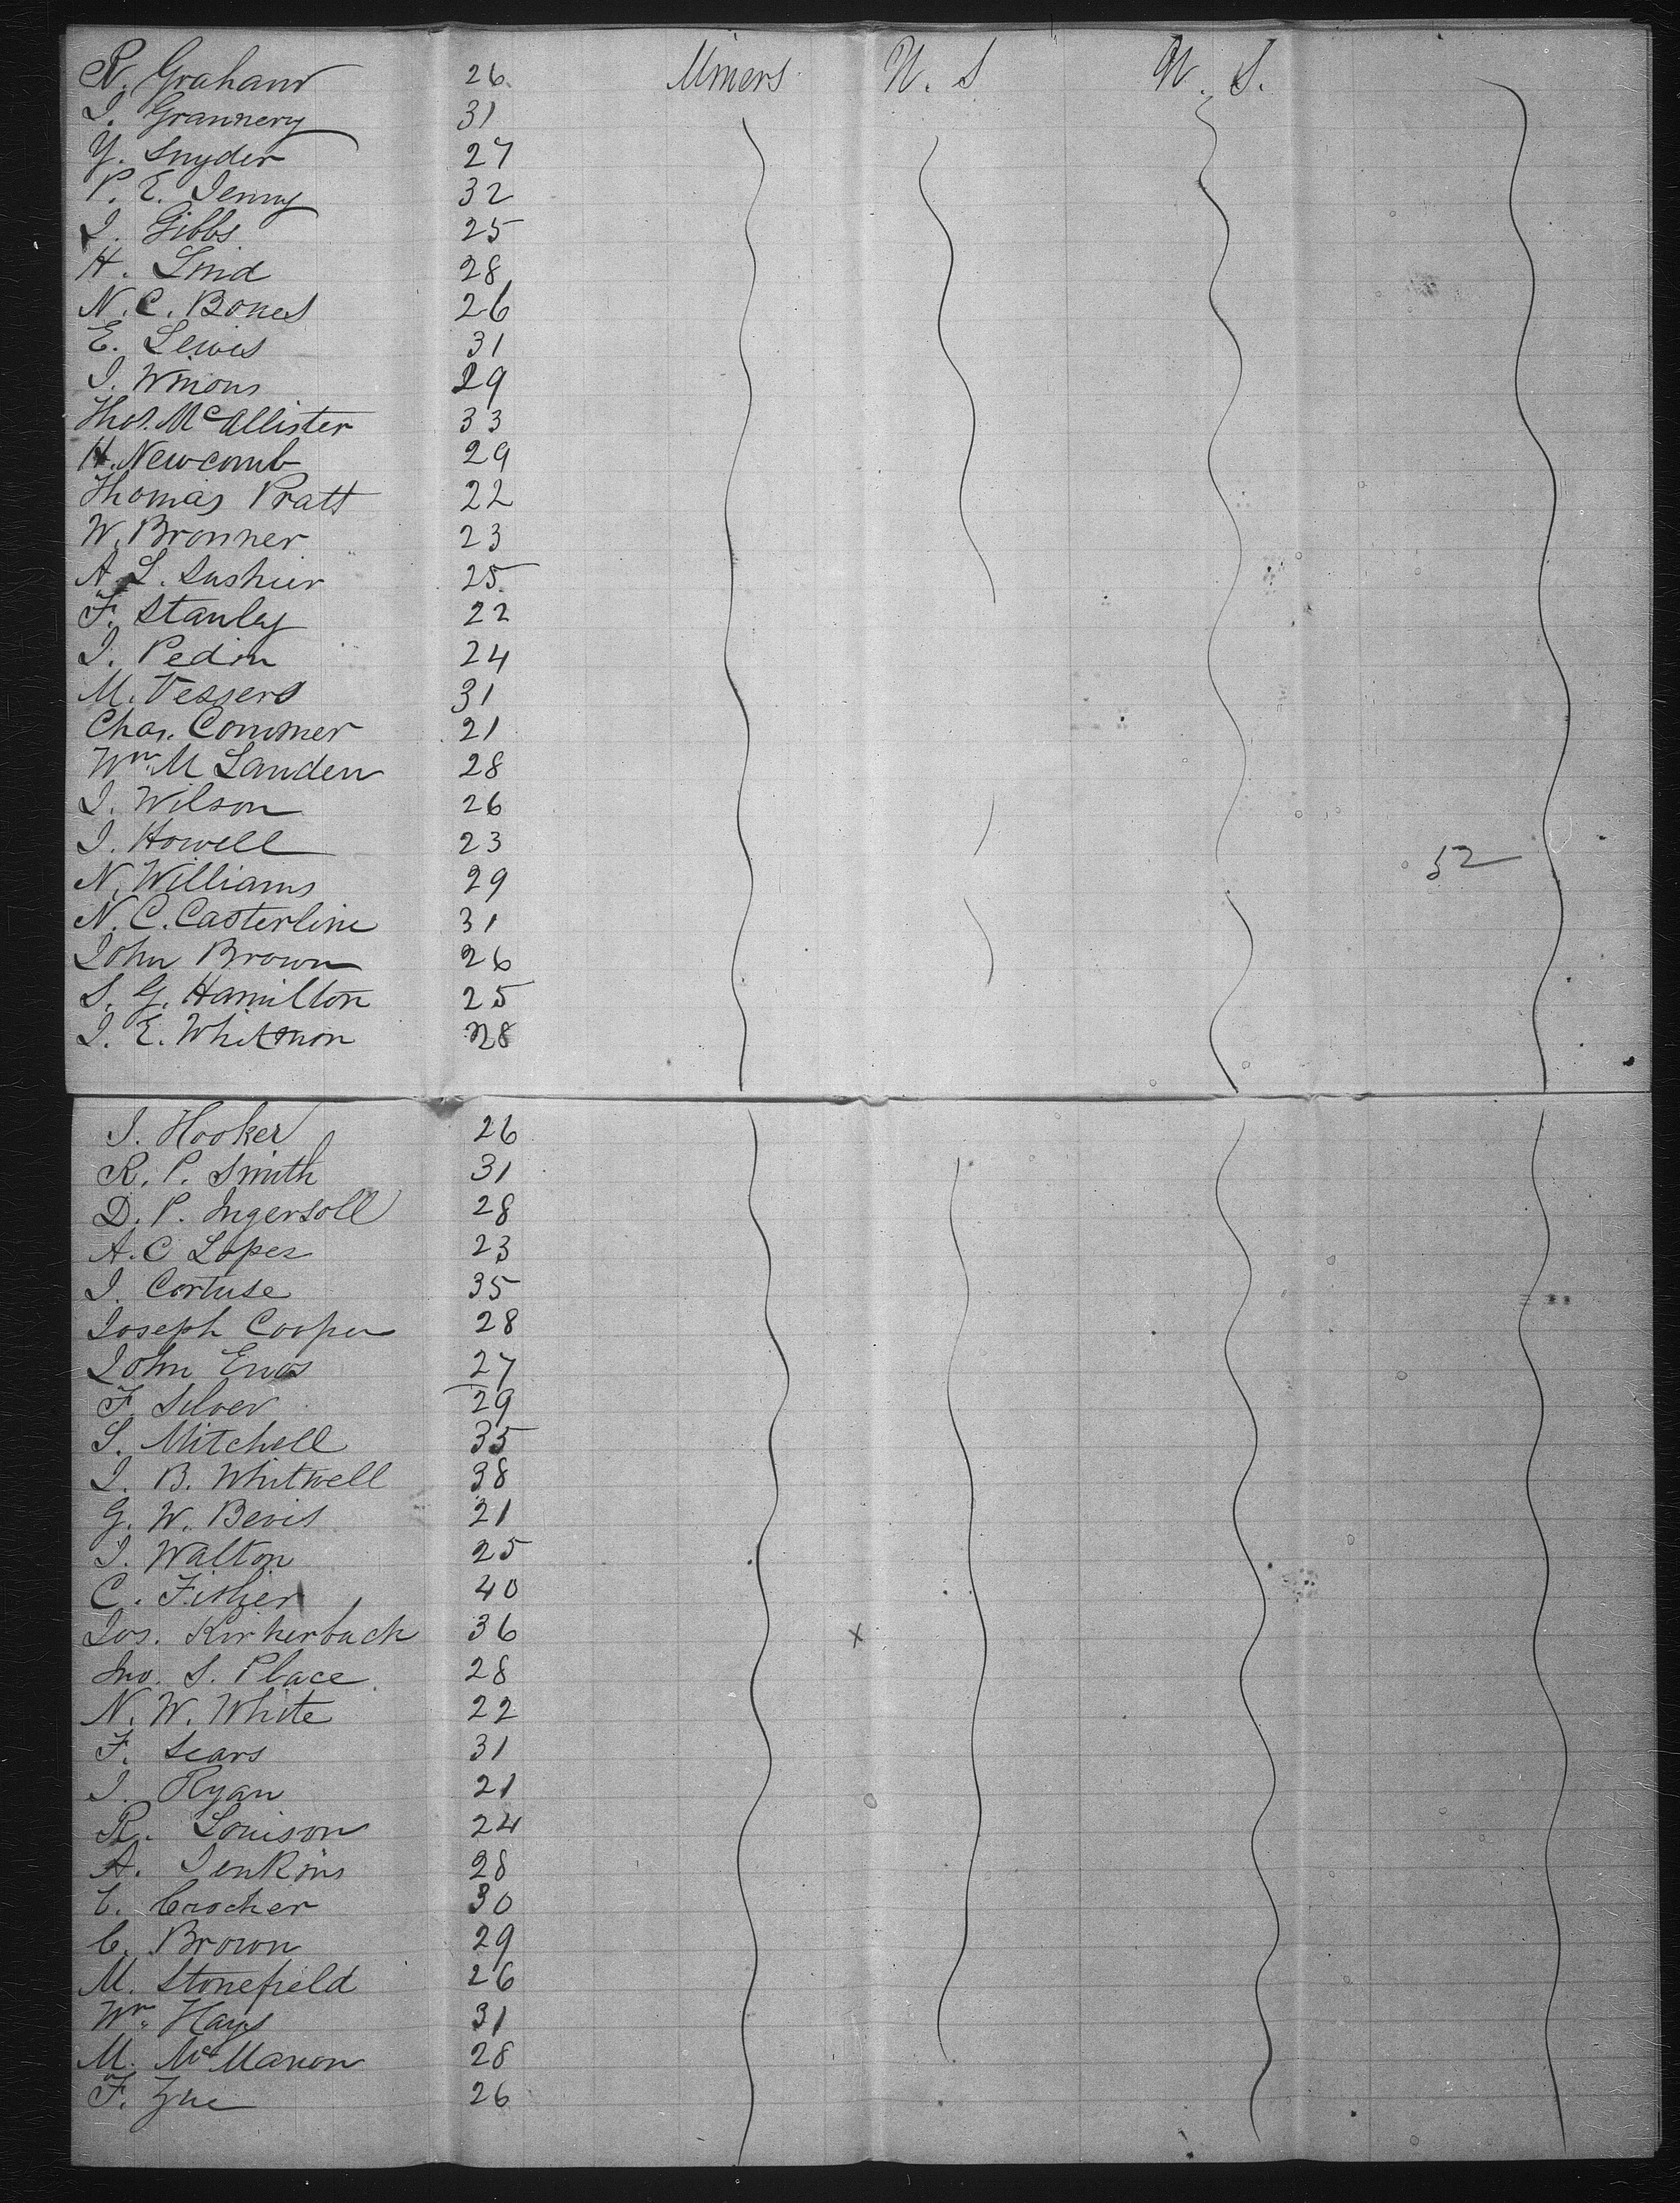 R. Graham 26 Miners U. S U. S.
J. Grannery 31
Y. Snyder 27
P. E. Jenny 32
J. Gibbs 25
H. Lind 28
N. C. Bones 26
E. Lewis 31
J. Winons 29
Thos. McAllister 33
H. Newcomb 29
Thomas Pratt 22
W. Bronner 23
A. L. Lushier 25
F. Stanley 22
J. Pedin 24
M. Vessers 31
Chas. Commer 21
Wm. M Landen 28
J. Wilson 26
J. Howell 23
N. Williams 29 52
N. C. Casterline 31
John Brown 26
S. G. Hamilton 25
J. E. Whitmon 28
J. Hooker 26
R. P. Smith 31
D. P. Ingersoll 28
A. C Lopez 23
J. Cortuse 35
Joseph Cooper 28
John Enos 27
F. Silver 29
S. Mitchell 35
J. B. Whitwell 38
G. W. Bevis 21
J. Walton 25
C. Fisher 40
Jos. Kirkerbach 36 x
Jno. S. Place 28
N. W. White 22
F. Sears 31
J. Ryan 21
R. Louison 24
A. Jenkins 28
E. Crocker 30
C. Brown 29
M. Stonefield 26
Wm. Hays 31
M. McManon 28
F. Zue 26